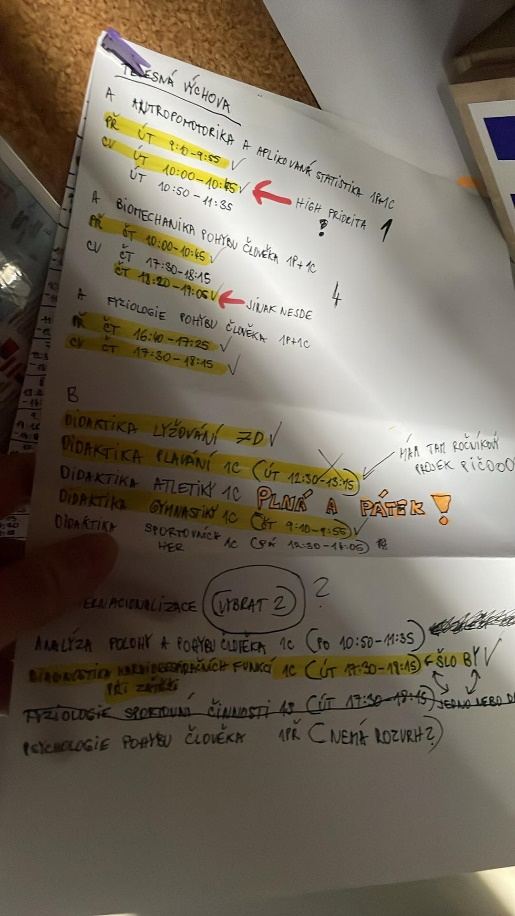 TĚLESNÁ VÝCHOVA
A ANTROPOMOTORIKA A APLIKOVANÁ STATISTIKA 1P+1C
PŘ ÚT 9:10-9:55 ✓
CV ÚT 10:00-10:45 ✓ ← HIGH PRIORITA
ÚT 10:50-11:35 ? 1
A BIOMECHANIKA POHYBU ČLOVĚKA 1P+1C
PŘ ÚT 10:00-10:45 ✓
CV ČT 17:30-18:15 4
ČT 18:20-19:05 ✓ ← JINAK NESDE
A FYZIOLOGIE POHYBU ČLOVĚKA 1P+1C
PŘ ČT 16:40-17:25 ✓
CV ČT 17:30-18:15 ✓
B
DIDAKTIKA LYŽOVÁNÍ 7D ✓
DIDAKTIKA PLAVÁNÍ 1C (ÚT 12:30-13:15) MÁM TAM ROČNÍKOVÝ
DIDAKTIKA ATLETIKY 1C PLNÁ A PÁTEK!
DIDAKTIKA GYMNASTIKY 1C (ČT 9:10-9:55) ✓
DIDAKTIKA SPORTOVNÍCH HER 1C
(VYBRAT 2) ?
ANALÝZA POLOHY A POHYBU ČLOVĚKA 1C (PO 10:50-11:35)
DIAGNOSTIKA 1C (ÚT 17:30-18:15) ← ŠLO BY ✓
PŘI ZÁTĚŽI
FYZIOLOGIE SPORTOVNÍ ČINNOSTI (ÚT 17:30-18:15) JEDNO NEBO
PSYCHOLOGIE POHYBU ČLOVĚKA 1PŘ (NEMÁ ROZVRH?)